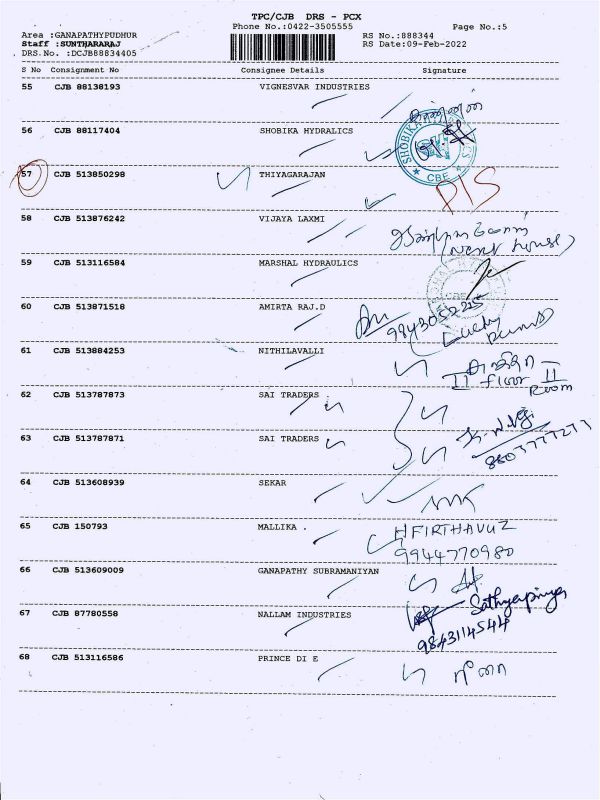 TPC/CJB DRS - PCX
Phone No.:0422-3505555 Page No.:5
Area :GANAPATHYPUDHUR RS No.:888344
Staff :SUNTHARARAJ RS Date:09-Feb-2022
DRS.No. :DCJB88834405
S No Consignment No Consignee Details Signature
55 CJB 88138193 VIGNESVAR INDUSTRIES
56 CJB 88117404 SHOBIKA HYDRALICS
CBE
57 CJB 513850298 THIYAGARAJAN
58 CJB 513876242 VIJAYA LAXMI
(Next house)
59 CJB 513116584 MARSHAL HYDRAULICS
60 CJB 513871518 AMIRTA RAJ.D
9843052225
61 CJB 513884253 NITHILAVALLI
II floor II
Room
62 CJB 513787873 SAI TRADERS
63 CJB 513787871 SAI TRADERS
64 CJB 513608939 SEKAR
65 CJB 150793 MALLIKA .
HFIRTHAVUZ
9944770980
66 CJB 513609009 GANAPATHY SUBRAMANIYAN
67 CJB 87780558 NALLAM INDUSTRIES
Sathyapriya
9843114544
68 CJB 513116586 PRINCE DI E